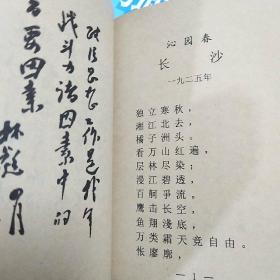 战斗力诸因素中的
要因素
林彪
沁园春
长沙
一九二五年
独立寒秋，
湘江北去，
橘子洲头。
看万山红遍，
层林尽染；
漫江碧透，
百舸爭流。
鹰击长空，
鱼翔浅底，
万类霜天竞自由。
怅廖廓，
— 1 —